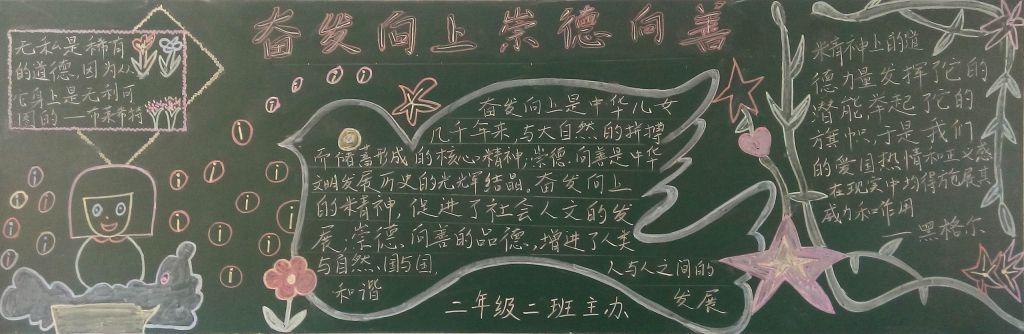 奋发向上 崇德向善
无私是稀有
的道德,因为从
它身上是无利可
图的——布莱希特
奋发向上是中华儿女
几千年来,与大自然的拼搏
而储蓄形成的核心精神;崇德向善是中华
文明发展历史的光辉结晶。奋发向上
的精神,促进了社会人文的发
展;崇德向善的品德,增进了人类
与自然、国与国、人与人之间的
和谐发展
二年级二班主办
精神上的道
德力量发挥了它的
潜能,举起了它的
旗帜,于是我们
的爱国热情和正义感
在现实中均得施展其
威力和作用
——黑格尔